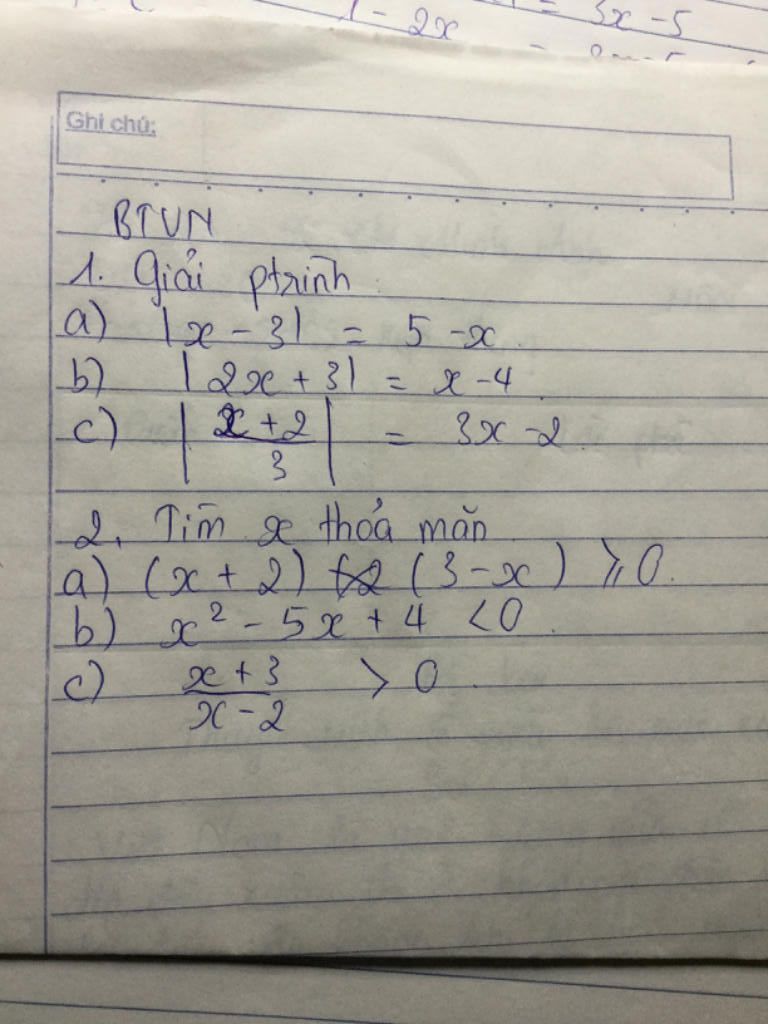 1 - 2x
= 3x - 5
Ghi chú:
BTVN
1. Giải ptrình
a) |x - 3| = 5 - x.
b) |2x + 3| = x - 4.
c) |(x + 2)/3| = 3x - 2
2. Tìm x thỏa mãn
a) (x + 2) (3 - x) ⩾ 0.
b) x² - 5x + 4 < 0.
c) (x + 3)/(x - 2) > 0.